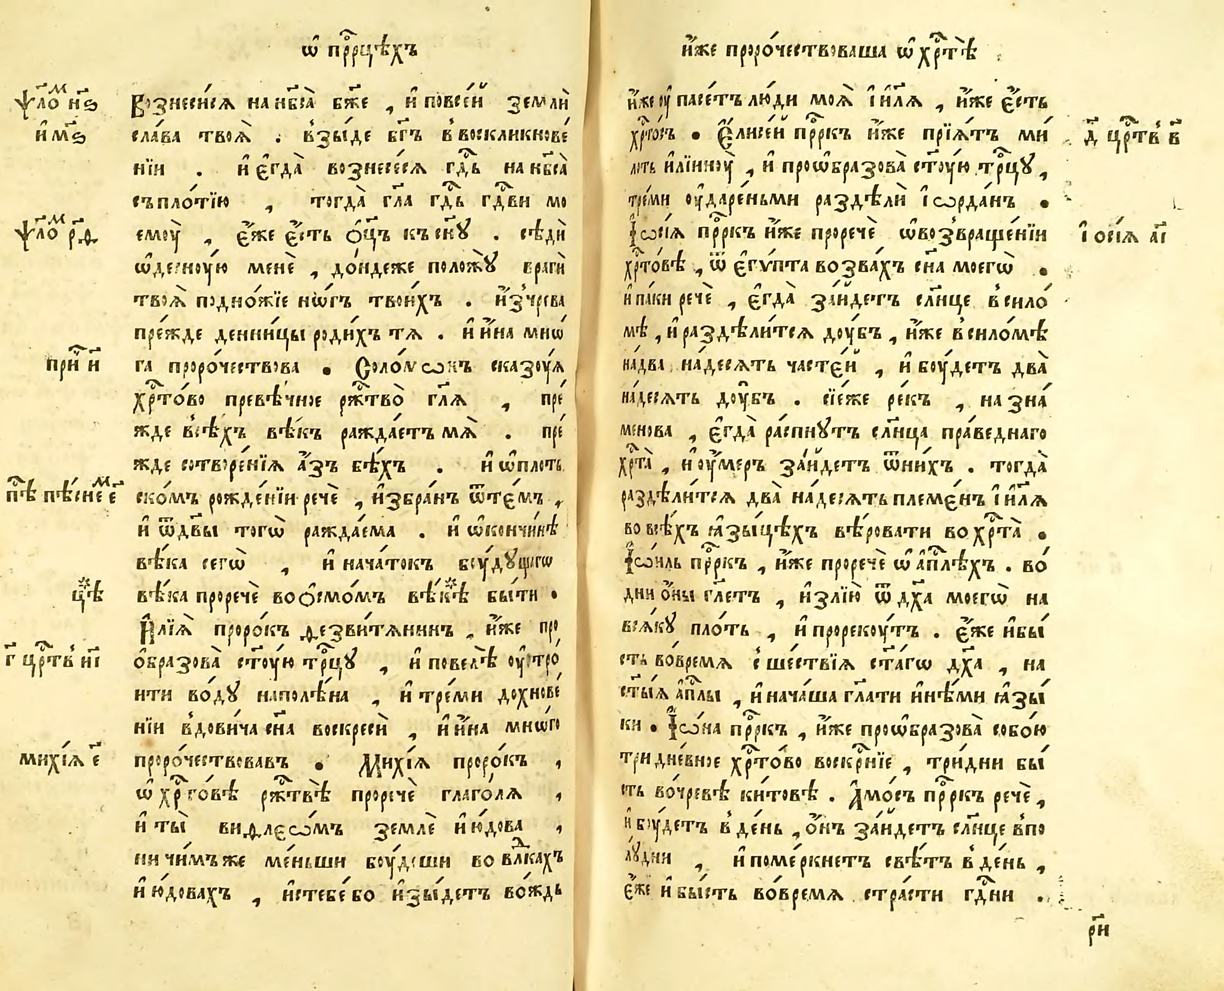 ѡ҆ прⷪ҇рцѣхъ
ѱало́мъ н҃ѕ
и҆ м҃ѕ
Вознеси́сѧ на нб҃са̀ бж҃е , и҆ по всеи҆̀ землѝ
сла́ва твоѧ̀ . взы́де бг҃ъ в воскликнове́
нїи . и҆ є҆гда̀ вознесе́сѧ гдⷭ҇ь на нб҃са̀
съ пло́тїю , тогда̀ гл҃а гдⷭ҇ь гдⷭ҇ви мо
ѱало́мъ р҃ѳ
емоу̀ , є҆́же є҆́сть ѻ҆ц҃ъ къ сн҃ꙋ . сѣдѝ
ѡ҆десноу́ю менѐ , до́ндеже положꙋ̀ врагѝ
твоѧ̀ подно́жїе но́гъ твои́хъ . и҆з̾ чре́ва
пре́жде денни́цы роди́хъ тѧ . и҆ и҆́на мнѡ́
при́ и҃
га проро́чествова . Соломѡ́нъ сказоу́ѧ
хрⷭ҇то́во превѣ́чное ржⷭ҇тво̀ гл҃ѧ , пре́
жде всѣ́хъ вѣ́къ ражда́етъ мѧ̀ . пре́
жде сотворе́нїѧ а҆́зъ бѣ́хъ . и҆ ѡ҆ пло́тъ
пѣ́ пѣ́снемъ є҃
ско́мъ рожде́нїи речѐ , и҆збра́нъ ѿ те́мъ ,
и҆ ѿ дв҃ы того̀ ражда́ема . и҆ ѡ҆ кончи́нѣ
вѣ́ка сегѡ̀ , и҆ нача́токъ боу́дꙋщагѡ
вѣ́ка проречѐ во ѻ҆смо́мъ вѣ́кѣ бы́ти .
И҆лїѧ̀ проро́къ ѳезви́тѧнинъ , и҆́же про
г҃ црⷭ҇тв и҃і
ѡ҆бразова̀ ст҃оу́ю трⷪ҇цꙋ , и҆ повелѣ̀ оу҆стро́
ити во́дꙋ напо́лѣна , и҆ тре́ми дохнове́
нїи вдови́ча сн҃а воскресѝ , и҆ и҆́на мнѡ́го
михїѧ є҃
проро́чествовавъ . Михїѧ проро́къ ,
ѡ҆ хрⷭ҇то́вѣ ржⷭ҇твѣ̀ проречѐ глаго́лѧ ,
и҆ ты̀ виѳлеѡ́мъ землѐ и҆ю́дова ,
ни чи́мъ же ме́ньши боу́деши во влⷣкахъ
и҆ю́довахъ , и҆с тебе́ бо и҆зы́детъ во́ждь
и҆́же проро́чествоваша ѡ҆ хрⷭ҇тѣ̀
и҆́же оу҆пасе́тъ лю́ди моѧ̀ і҆и҃лѧ , и҆́же є҆́сть
д҃ црⷭ҇тв в҃
хрⷭ҇то́съ . Є҆лисе́й прⷪ҇ркъ и҆́же прїѧ́тъ ми́
лоть и҆лїи́ноу , и҆ проѡ҆бразова̀ ст҃оу́ю трⷪ҇цꙋ ,
тре́ми оу҆даре́ньми раздѣлѝ і҆ѡрда́нъ .
і҆осїѧ а҃і
І҆ѡсїѧ прⷪ҇ркъ и҆́же проречѐ ѡ҆ возвраще́нїи
хрⷭ҇то́вѣ , ѿ є҆гѵ́пта возва́хъ сн҃а моегѡ̀ .
и҆ па́ки речѐ , є҆гда̀ за́йдетъ сл҃нце в сило́
мѣ , и҆ раздѣли́тсѧ доу́бъ , и҆́же в сило́мѣ
на́два на́десѧть часте́й , и҆ боу́детъ два̀
на́десѧть доу́бъ . сїе́же ре́къ , на зна́
менова , є҆гда̀ распну́тъ сл҃нца пра́веднаго
хрⷭ҇та̀ , и҆ оу҆́меръ за́йдетъ ѿ ни́хъ . тогда̀
раздѣли́тсѧ два̀ на́десѧть племе́нъ і҆и҃лѧ
во всѣ́хъ ꙗ҆зы́цѣхъ вѣ́ровати во хрⷭ҇та̀ .
І҆ѡи́ль прⷪ҇ркъ , и҆́же проречѐ ѡ҆ а҆пⷭ҇лѣхъ . во́
дни ѻ҆́ны гл҃етъ , и҆злїю̀ ѿ дх҃а моегѡ̀ на
всѧ́кꙋ пло́ть , и҆ прореку́тъ . є҆́же и҆ бы́
сть во́время сше́ствїѧ ст҃а́гѡ дх҃а , на
ст҃ы́ѧ а҆пⷭ҇лы , и҆ нача́ша гл҃ати и҆нѣ́ми ꙗ҆зы́
ки . І҆ѡ́на прⷪ҇ркъ , и҆́же проѡ҆бразова̀ собо́ю
тридне́вное хрⷭ҇то́во воскрⷭ҇нїе , три́дни бы́
сть во чре́вѣ ки́товѣ . А҆мо́съ прⷪ҇ркъ речѐ ,
и҆ боу́детъ в де́нь , ѻ҆́нъ за́йдетъ сл҃нце в по
лꙋ́дни , и҆ поме́ркнетъ свѣ́тъ в де́нь ,
є҆́же и҆ бы́сть во́время стра́сти гдⷭ҇ни .
р҃и